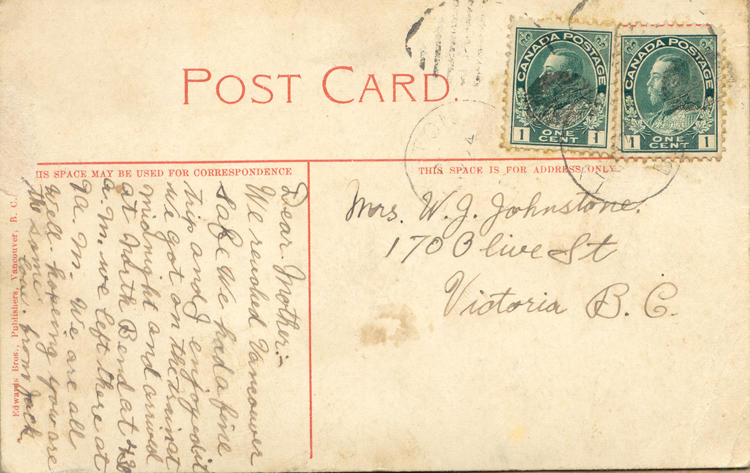 POST CARD.
CANADA POSTAGE
1 ONE CENT 1
CANADA POSTAGE
1 ONE CENT 1
THIS SPACE MAY BE USED FOR CORRESPONDENCE
THIS SPACE IS FOR ADDRESS ONLY
Mrs. W. J. Johnstone.
170 Olive St
Victoria B. C.
Dear Mother:-
We reached Vancouver
safe We had a fine
trip and I enjoy dit
we got on the traint
midnight and arrived
at North Bend at
a. m. we left there at
M. We are all
well hopeing you are
the same. from Jack.
Edwards Bros., Publishers, Vancouver, B. C.